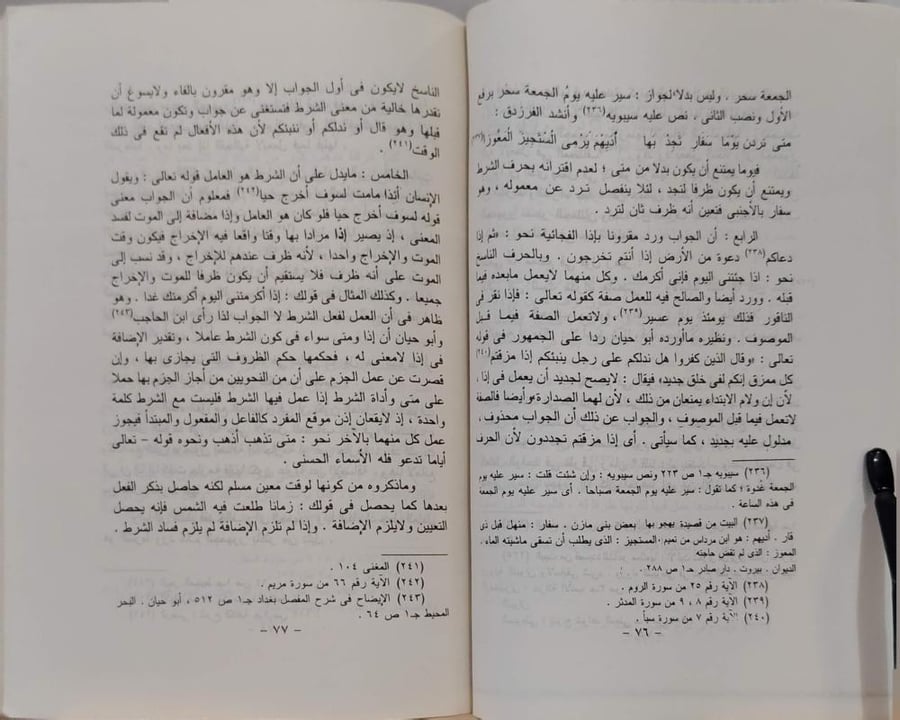 الجمعة سحر . وليس بدلا لجواز : سير عليه يومُ الجمعة سحر برفع
الأول ونصب الثانى ، نص عليه سيبويه(٢٣٦) وأنشد الفرزدق :
متى تردن يَوْمًا سَفَار تَجْدْ بَهَا أديهم يَرْمى الْمُسْتَجيزَ الْمَعُورَا(٢٣٧)
فيوما يمتنع أن يكون بدلا من متى ؛ لعدم اقترانه بحرف الشرط
ويمتنع أن يكون ظرفا لتجد ، لئلا ينفصل ترد عن معموله ، وهو
سفار بالأجنبى فتعين أنه ظرف ثان لترد .
الرابع : أن الجواب ورد مقرونا بإذا الفجائية نحو : «ثم إذا
دعاكم(٢٣٨) دعوة من الأرض إذا أنتم تخرجون . وبالحرف الناسخ
نحو : اذا جئتنى اليوم فإنى أكرمك . وكل منهما لايعمل مابعده فيما
قبله . وورد أيضا والصالح فيه للعمل صفة كقوله تعالى : فإذا نقر فى
الناقور فذلك يومئذ يوم عسير(٢٣٩) ، ولاتعمل الصفة فيما قبل
الموصوف . ونظيره ماأورده أبو حيان ردا على الجمهور فى قوله
تعالى : «وقال الذين كفروا هل ندلكم على رجل ينبئكم إذا مزقتم(٢٤٠)
كل ممزق إنكم لفى خلق جديد» فيقال : لايصح لجديد أن يعمل فى إذا ،
لأن إن ولام الابتداء يمنعان من ذلك ، لأن لهما الصدارة وأيضا فالصفة
لاتعمل فيما قبل الموصوف ، والجواب عن ذلك أن الجواب محذوف ،
مدلول عليه بجديد ، كما سيأتى . أى إذا مزقتم تجددون لأن الحرف
(٢٣٦) سيبويه جـ١ ص ٢٢٣ ونص سيبويه : وإن شئت قلت : سير عليه يوم
الجمعة غدوة ؛ كما تقول : سير عليه يوم الجمعة صباحا . أى سير عليه يوم الجمعة
فى هذه الساعة .
(٢٣٧) البيت من قصيدة يهجو بها بعض بنى مازن . سفار : منهل قبل ذى
قار . أديهم : هو ابن مرداس من تميم . المستجيز : الذى يطلب أن تسقى ماشيته الماء .
المعوز : الذى لم تقض حاجته
الديوان . بيروت . دار صادر جـ١ ص ٢٨٨ .
(٢٣٨) الآية رقم ٢٥ من سورة الروم .
(٢٣٩) الآية رقم ٨ ، ٩ من سورة المدثر .
(٢٤٠) الآية رقم ٧ من سورة سبأ .
– ٧٦ –
الناسخ لايكون فى أول الجواب إلا وهو مقرون بالفاء ولايسوغ أن
نقدرها خالية من معنى الشرط فتستغنى عن جواب وتكون معمولة لما
قبلها وهو قال أو ندلكم أو ننبئكم لأن هذه الأفعال لم تقع فى ذلك
الوقت(٢٤١) .
الخامس : مايدل على أن الشرط هو العامل قوله تعالى : ويقول
الإنسان أئذا مامت لسوف أخرج حيا(٢٤٢) فمعلوم أن الجواب معنى
قوله لسوف أخرج حيا فلو كان هو العامل وإذا مضافة إلى الموت لفسد
المعنى ، إذ يصير إذا مرادا بها وقتا واقعا فيه الإخراج فيكون وقت
الموت والإخراج واحدا ، لأنه ظرف عندهم للإخراج ، وقد نسب إلى
الموت على أنه ظرف فلا يستقيم أن يكون ظرفا للموت والإخراج
جميعا . وكذلك المثال فى قولك : إذا أكرمتنى اليوم أكرمتك غدا . وهو
ظاهر فى أن العمل لفعل الشرط لا الجواب لذا رأى ابن الحاجب(٢٤٣)
وأبو حيان أن إذا ومتى سواء فى كون الشرط عاملا ، وتقدير الإضافة
فى إذا لامعنى له ، فحكمها حكم الظروف التى يجازى بها ، وإن
قصرت عن عمل الجزم على أن من النحويين من أجاز الجزم بها حملا
على متى وأداة الشرط إذا عمل فيها الشرط فليست مع الشرط كلمة
واحدة ، إذ لايقعان إذن موقع المفرد كالفاعل والمفعول والمبتدأ فيجوز
عمل كل منهما بالآخر نحو : متى تذهب أذهب ونحوه قوله – تعالى
أياما تدعو فله الأسماء الحسنى .
وماذكروه من كونها لوقت معين مسلم لكنه حاصل بذكر الفعل
بعدها كما يحصل فى قولك : زمانا طلعت فيه الشمس فإنه يحصل
التعيين ولايلزم الإضافة . وإذا لم تلزم الإضافة لم يلزم فساد الشرط .
(٢٤١) المغنى ١٠٤ .
(٢٤٢) الآية رقم ٦٦ من سورة مريم .
(٢٤٣) الإيضاح فى شرح المفصل بغداد جـ١ ص ٥١٢ ، أبو حيان . البحر
المحيط جـ١ ص ٦٤ .
– ٧٧ –